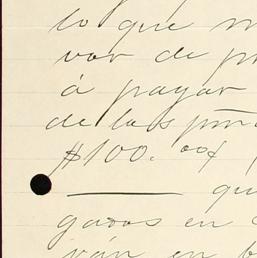 lo que m
vor de p
á pagar
de las pro
$100.oo/
qu
gados en
ván en